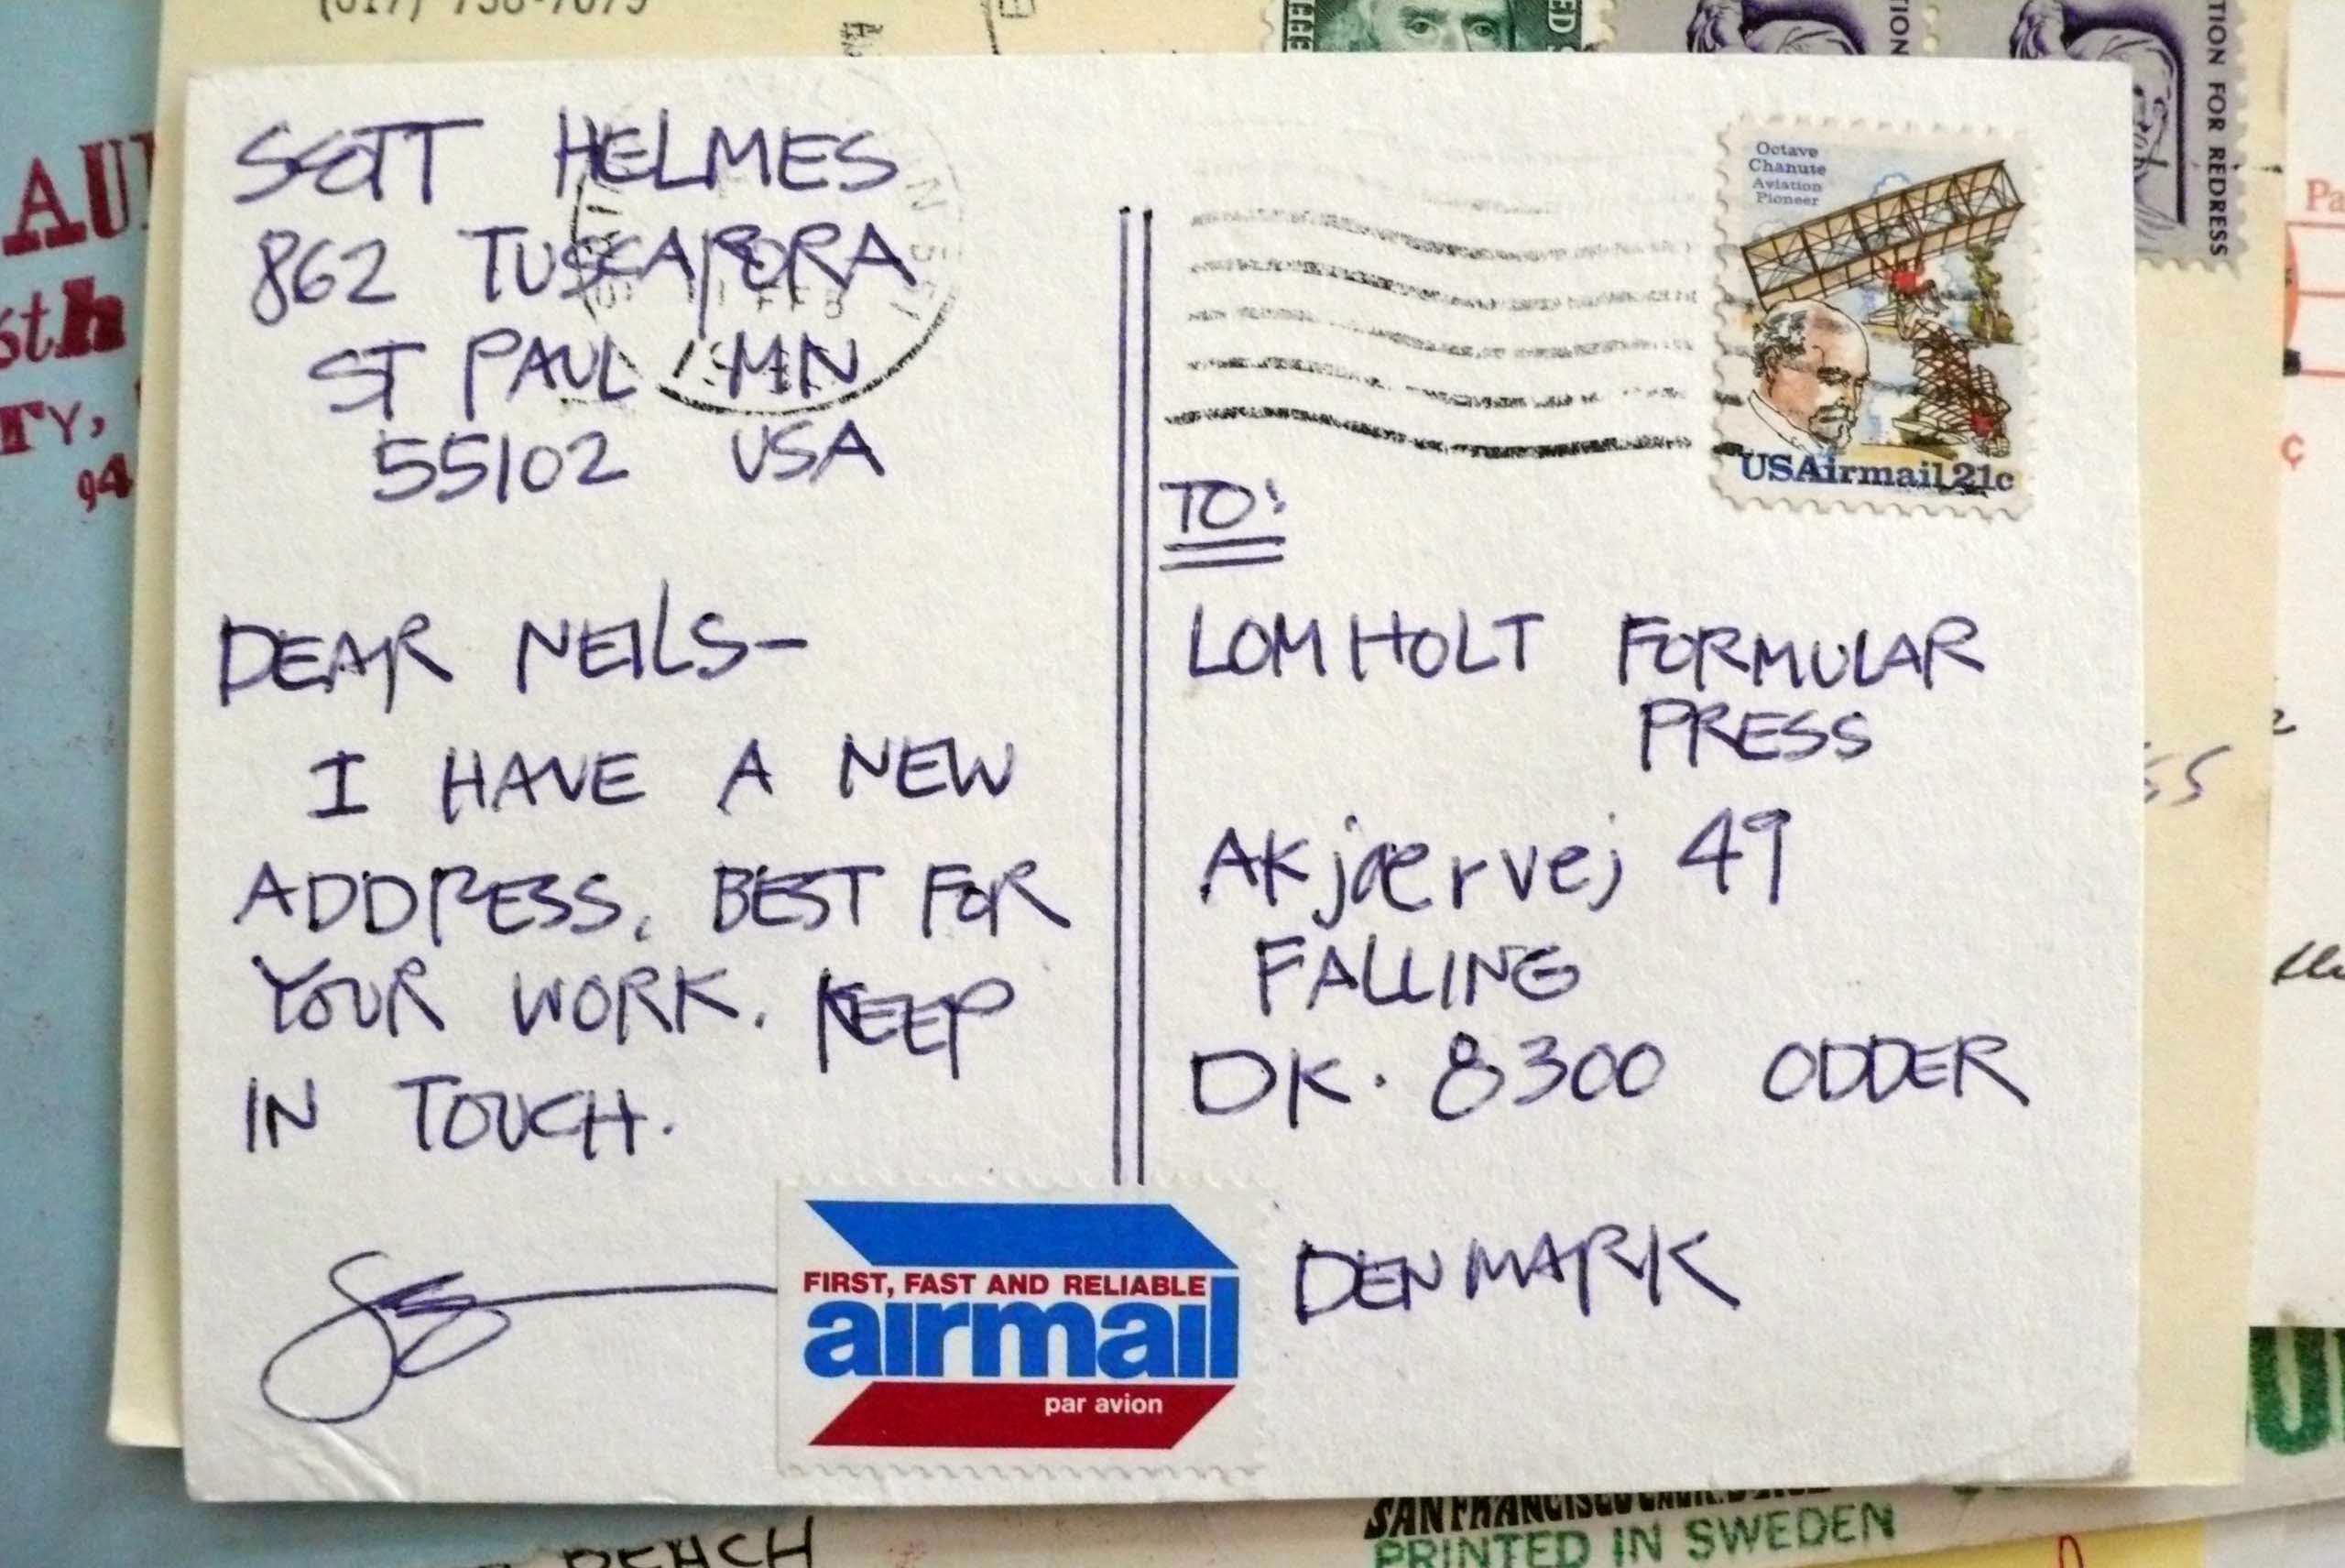 SCOTT HELMES
862 TUSCARORA
ST PAUL MN
55102 USA
DEAR NEILS-
I HAVE A NEW
ADDRESS. BEST FOR
YOUR WORK. KEEP
IN TOUCH.
Octave
Chanute
Aviation
Pioneer
USAirmail 21c
TO:
LOMHOLT FORMULAR
PRESS
AKjærvej 49
FALLING
DK. 8300 ODDER
DENMARK
FIRST, FAST AND RELIABLE
airmail
par avion
TION FOR REDRESS
PRINTED IN SWEDEN
BEACH